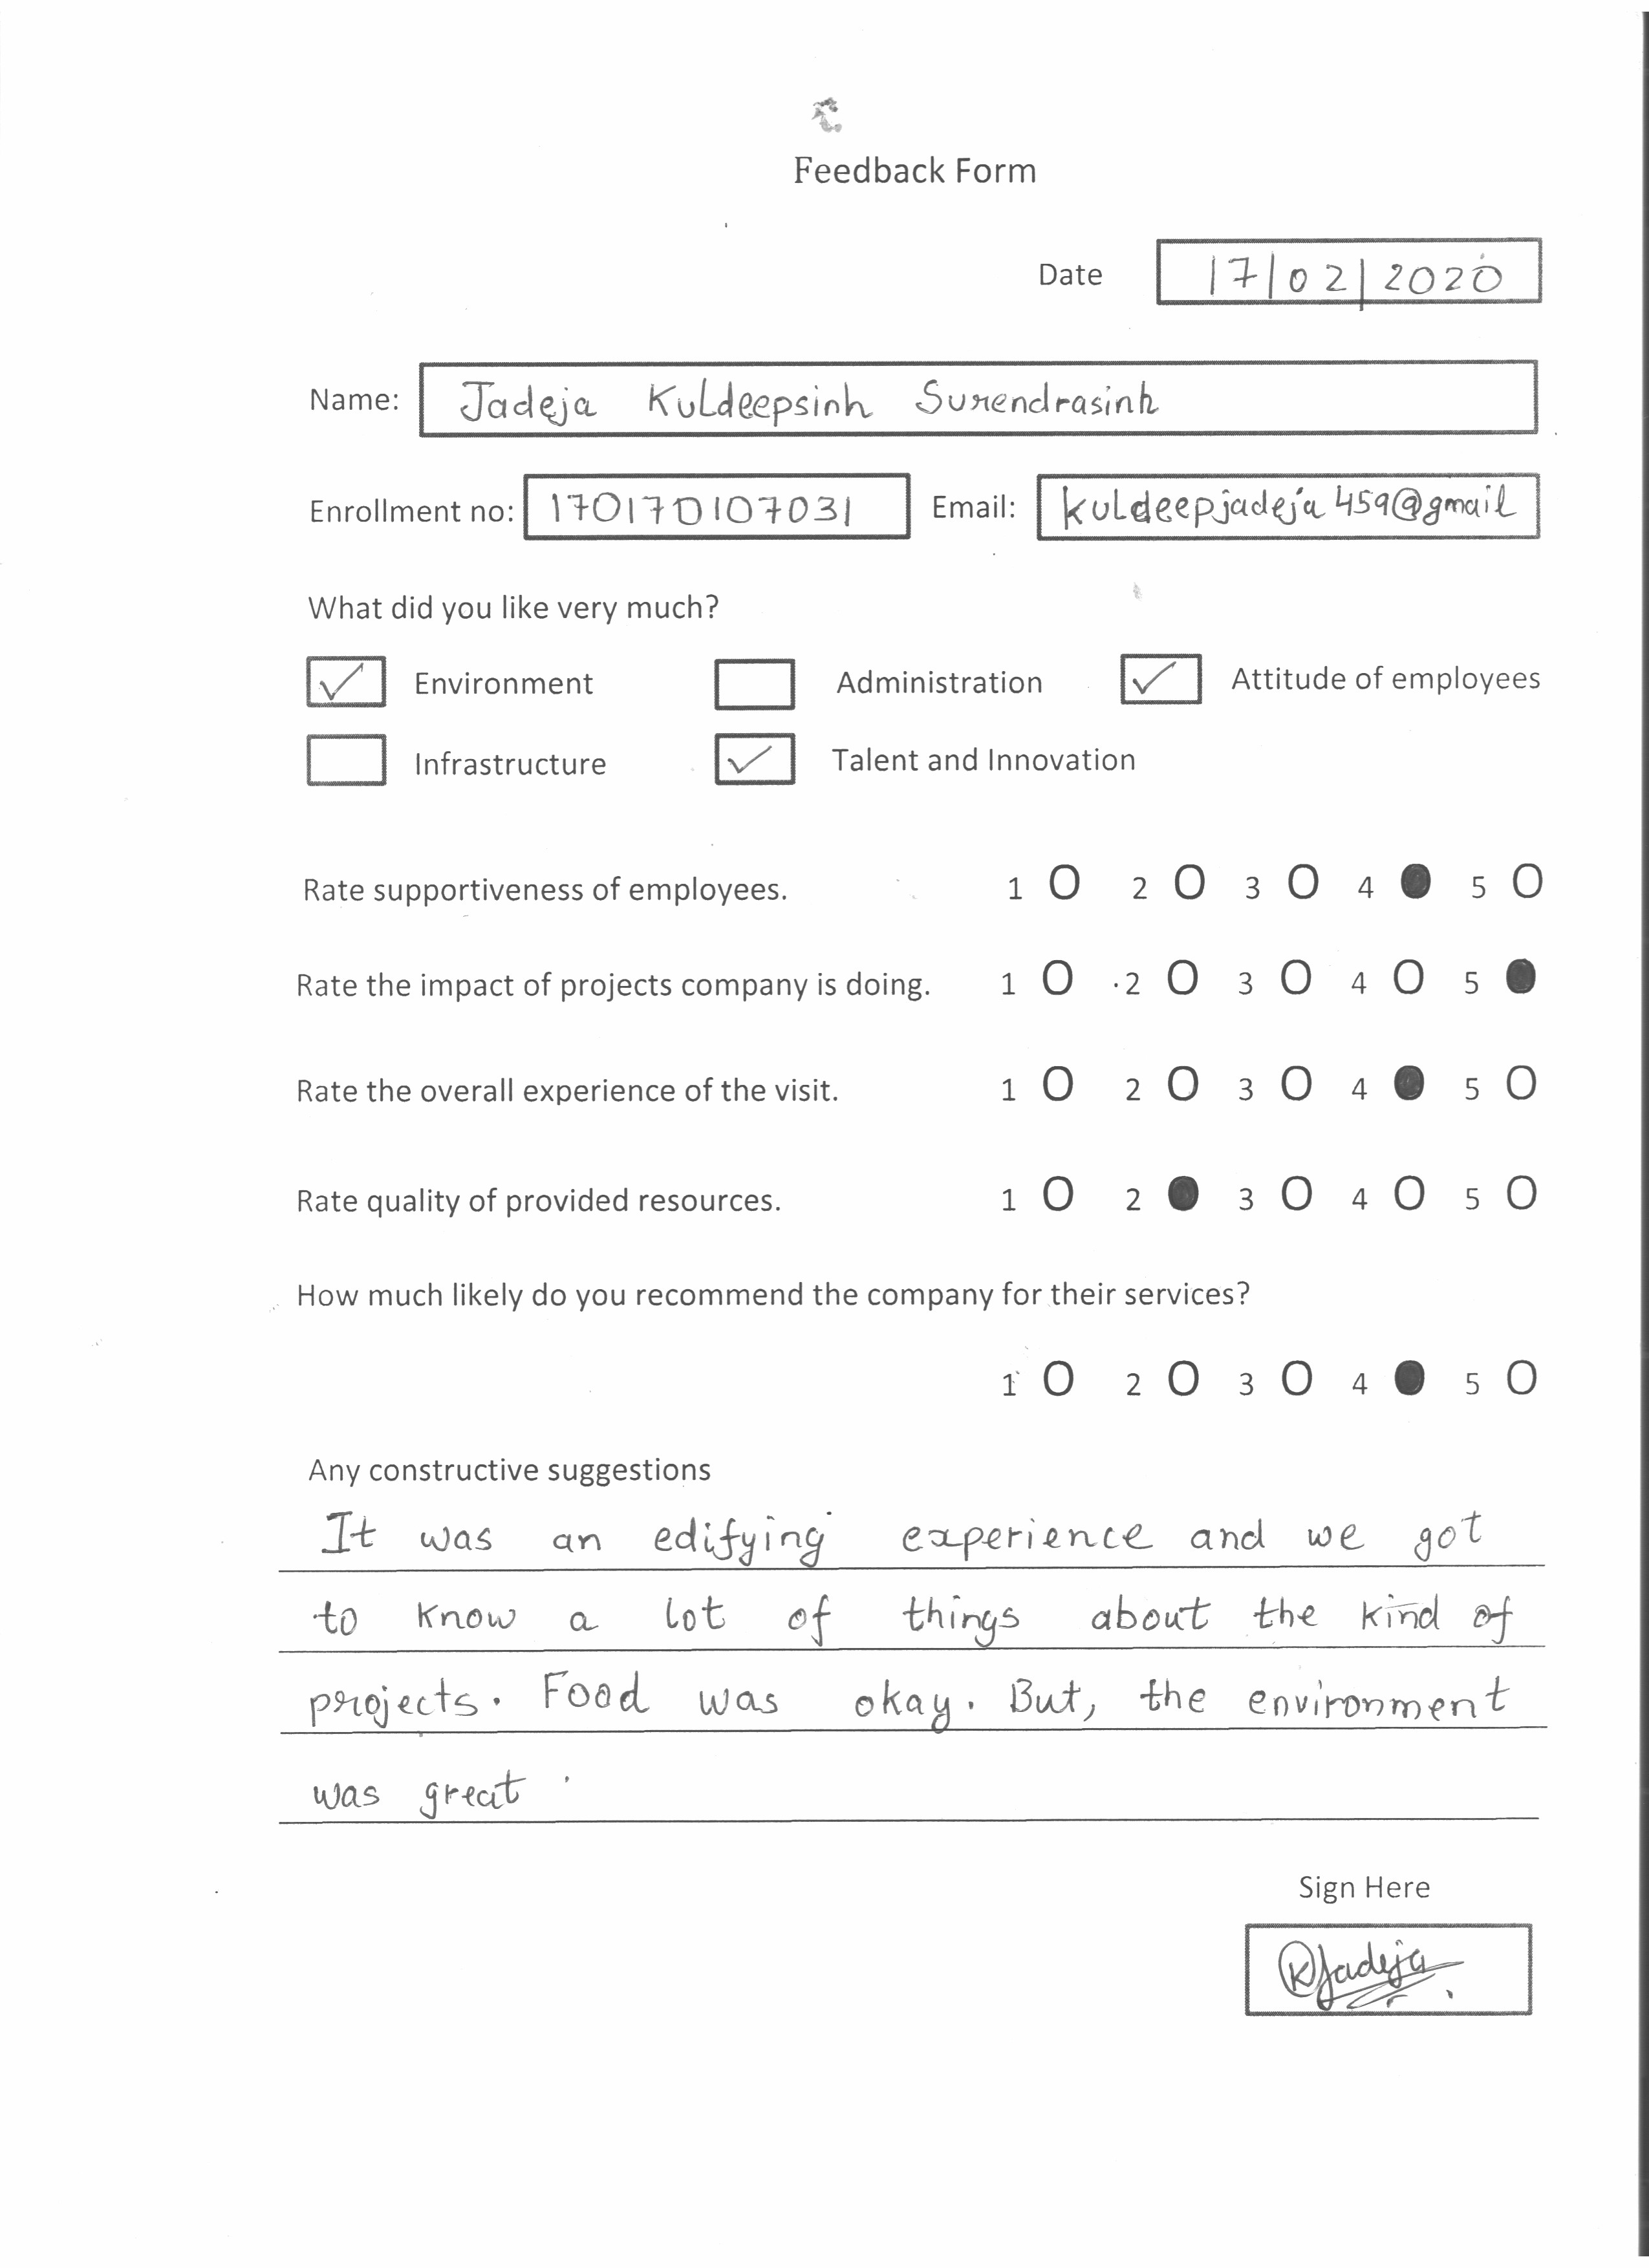 Feedback Form
Date 17/02/2020
Name: Jadeja Kuldeepsinh Surendrasinh
Enrollment no: 170170107031 Email: kuldeepjadeja459@gmail
What did you like very much?
✓ Environment Administration ✓ Attitude of employees
Infrastructure ✓ Talent and Innovation
Rate supportiveness of employees. 1 O 2 O 3 O 4 ● 5 O
Rate the impact of projects company is doing. 1 O 2 O 3 O 4 O 5 ●
Rate the overall experience of the visit. 1 O 2 O 3 O 4 ● 5 O
Rate quality of provided resources. 1 O 2 ● 3 O 4 O 5 O
How much likely do you recommend the company for their services?
1 O 2 O 3 O 4 ● 5 O
Any constructive suggestions
It was an edifying experience and we got
to know a lot of things about the kind of
projects. Food was okay. But, the environment
was great.
Sign Here
KJadeja